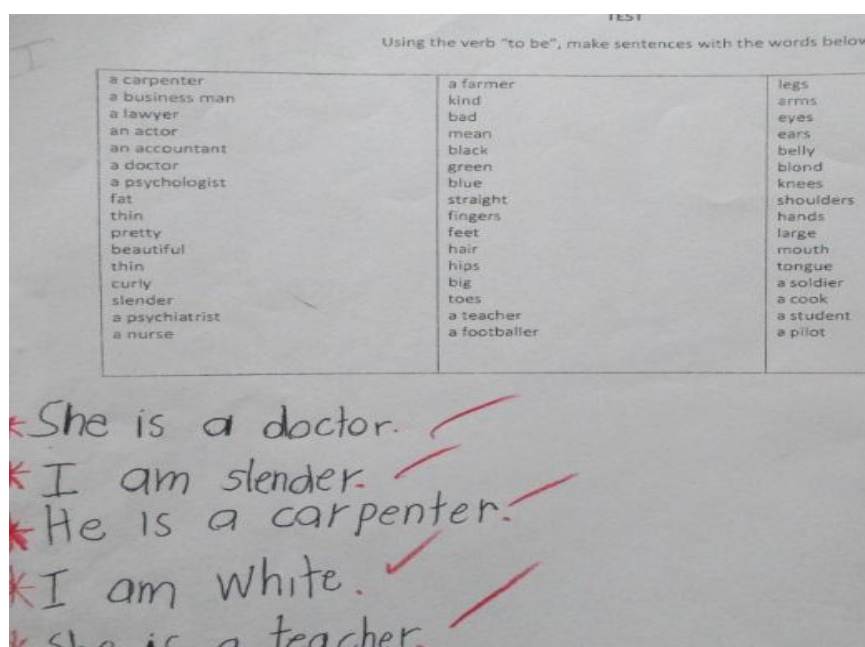 TEST
Using the verb "to be", make sentences with the words below
a carpenter
a business man
a lawyer
an actor
an accountant
a doctor
a psychologist
fat
thin
pretty
beautiful
thin
curly
slender
a psychiatrist
a nurse
a farmer
kind
bad
mean
black
green
blue
straight
fingers
feet
hair
hips
big
toes
a teacher
a footballer
legs
arms
eyes
ears
belly
blond
knees
shoulders
hands
large
mouth
tongue
a soldier
a cook
a student
a pilot
She is a doctor.
I am slender.
He is a carpenter.
I am white.
She is a teacher.